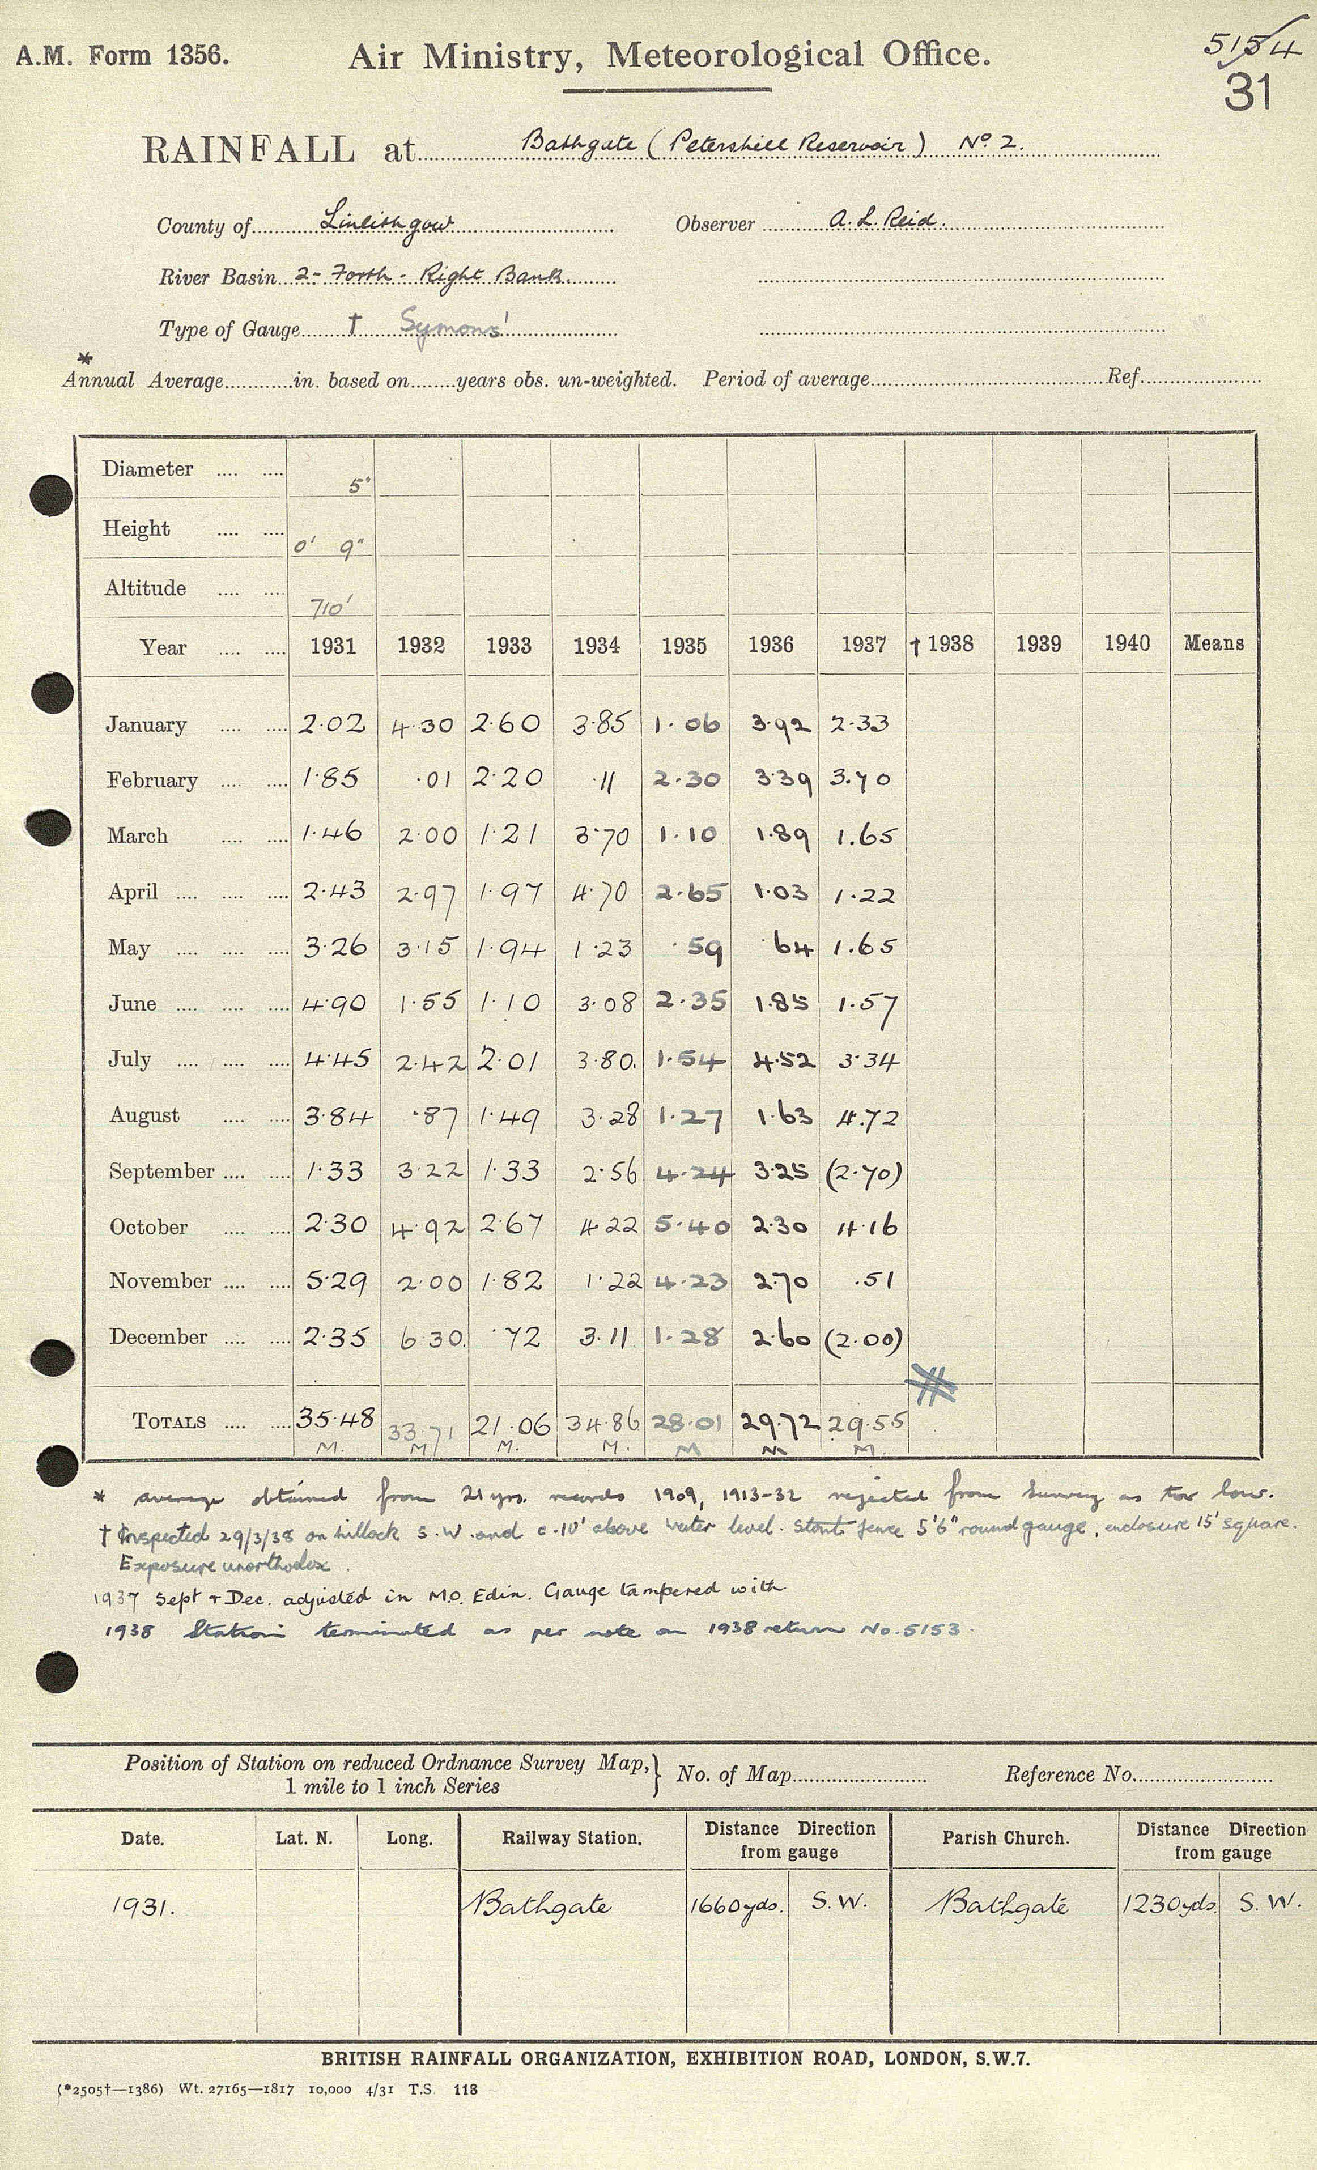 A.M. Form 1356. Air Ministry, Meteorological Office. 5154
31
RAINFALL at Bathgate (Petershill Reservoir) No 2.
County of Linlithgow Observer A. L. Reid.
River Basin 2- Forth - Right Bank.
Type of Gauge † Symons'
*
Annual Average in. based on years obs. un-weighted. Period of average Ref.
Diameter 5"
Height 0' 9"
Altitude 710'
Year 1931 1932 1933 1934 1935 1936 1937 †1938 1939 1940 Means
January 2.02 4.30 2.60 3.85 1.06 3.92 2.33
February 1.85 .01 2.20 .11 2.30 3.39 3.70
March 1.46 2.00 1.21 3.70 1.10 1.89 1.65
April 2.43 2.97 1.97 4.70 2.65 1.03 1.22
May 3.26 3.15 1.94 1.23 .59 .64 1.65
June 4.90 1.55 1.10 3.08 2.35 1.85 1.57
July 4.45 2.42 2.01 3.80 1.54 4.52 3.34
August 3.84 .87 1.49 3.28 1.27 1.63 4.72
September 1.33 3.22 1.33 2.56 4.24 3.25 (2.70)
October 2.30 4.92 2.67 4.22 5.40 2.30 4.16
November 5.29 2.00 1.82 1.22 4.23 2.70 .51
December 2.35 6.30 .72 3.11 1.28 2.60 (2.00)
TOTALS 35.48 33.71 21.06 34.86 28.01 29.72 29.55
M. M M. M. M M M.
* average obtained from 21 yrs. records 1909, 1913-32 rejected from Survey as too low.
† Inspected 29/3/38 on hillock S.W. and c.10' above water level. Stout fence 5'6" round gauge, enclosure 15' square.
Exposure unorthodox.
1937 Sept + Dec. adjusted in M.O. Edin. Gauge tampered with
1938 Station terminated as per note on 1938 return No. 5153.
Position of Station on reduced Ordnance Survey Map, } No. of Map Reference No.
1 mile to 1 inch Series
Date. Lat. N. Long. Railway Station. Distance Direction from gauge Parish Church. Distance Direction from gauge
1931. Bathgate 1660 yds. S.W. Bathgate 1230 yds. S.W.
BRITISH RAINFALL ORGANIZATION, EXHIBITION ROAD, LONDON, S.W.7.
(*2505†—1386) Wt. 27165—1817 10,000 4/31 T.S. 118